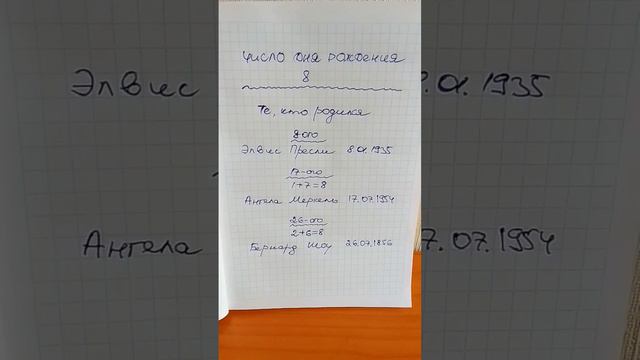 Число дня рождения
8
Те, кто родился
8-ого
Элвис Пресли 8.01.1935
17-ого
1+7=8
Ангела Меркель 17.07.1954
26-ого
2+6=8
Бернард Шоу 26.07.1856
Элвис
8.01.1935
Ангела
7.07.1954